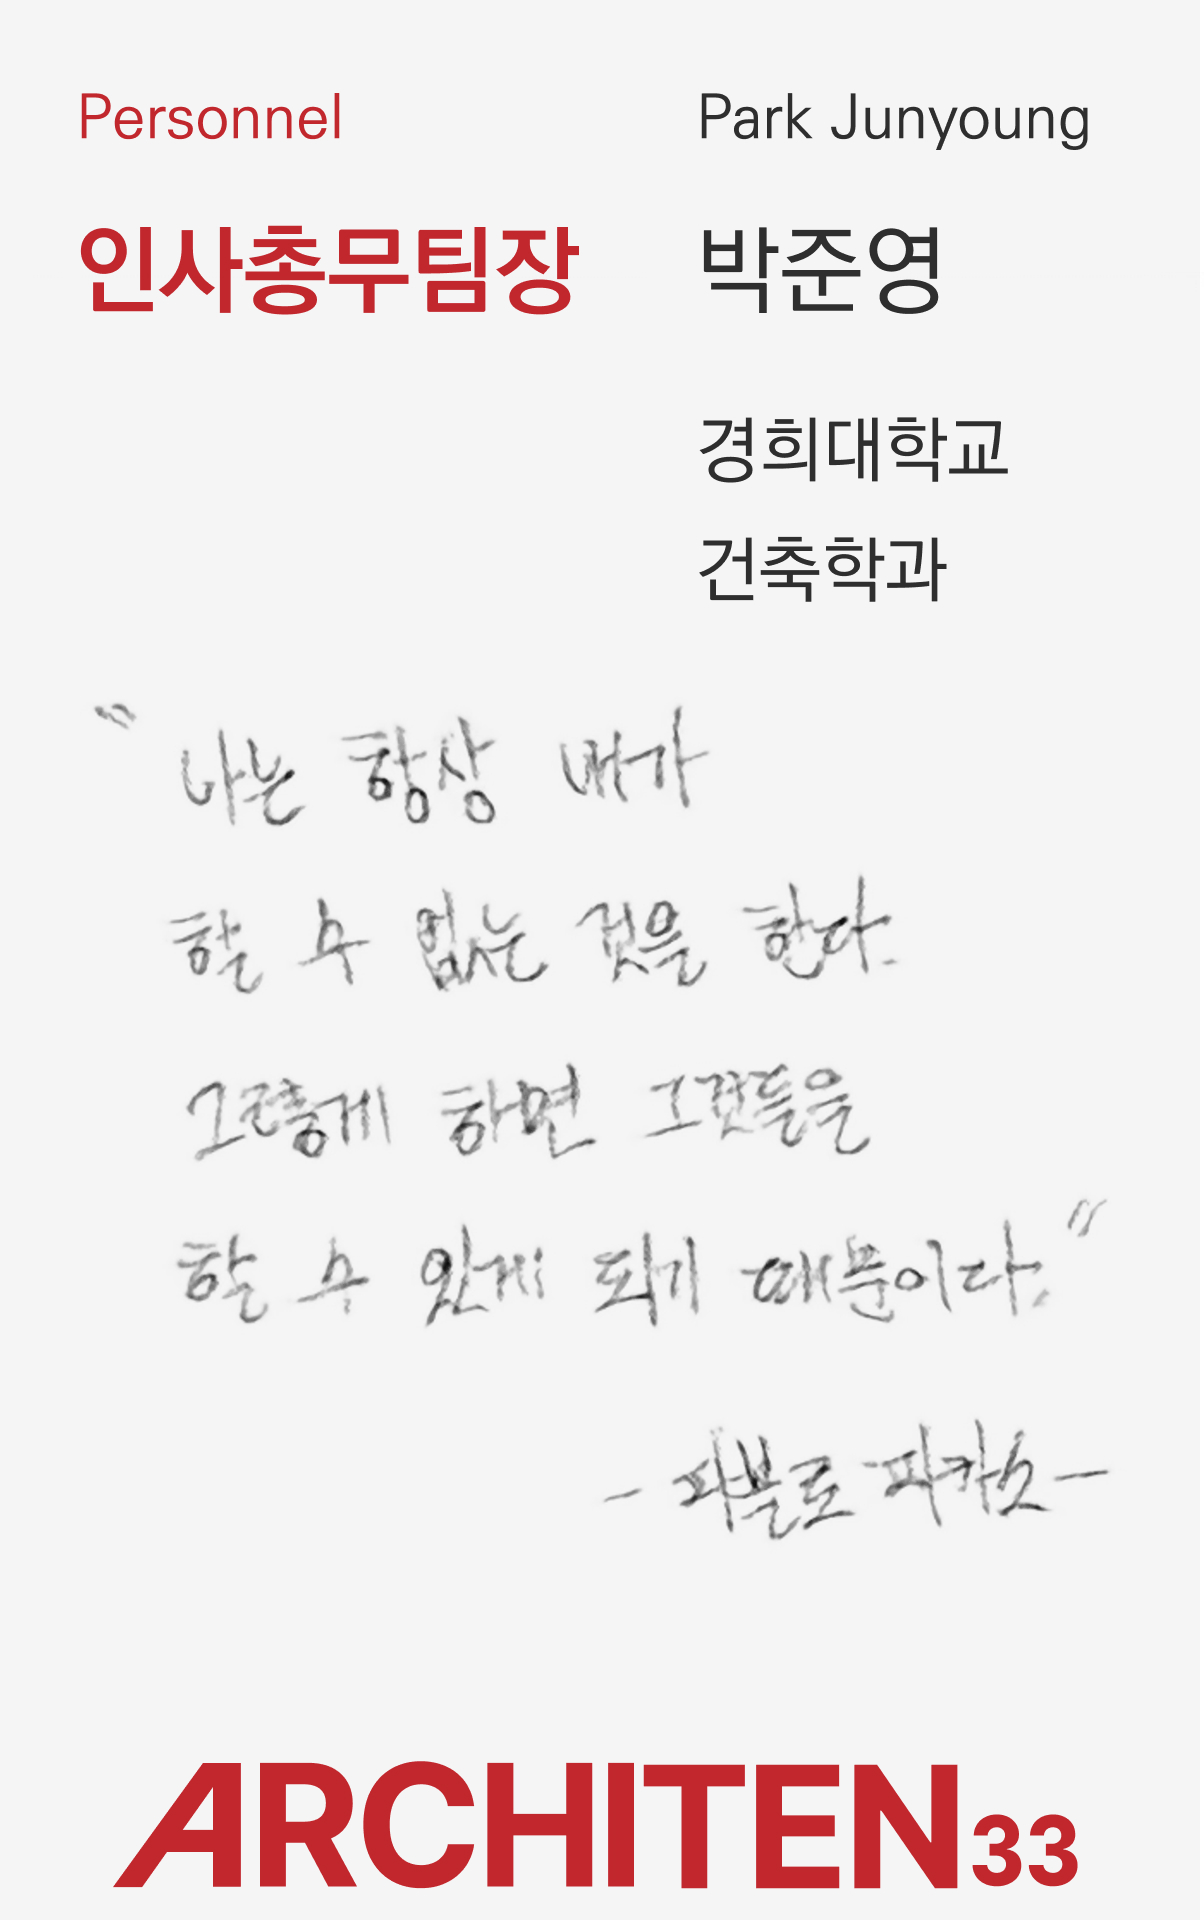 Personnel
Park Junyoung
인사총무팀장
박준영
경희대학교
건축학과
"나는 항상 내가
할 수 없는 것을 한다.
그렇게 하면 그것들을
할 수 있게 되기 때문이다."
- 파블로 피카소 -
ARCHITEN33